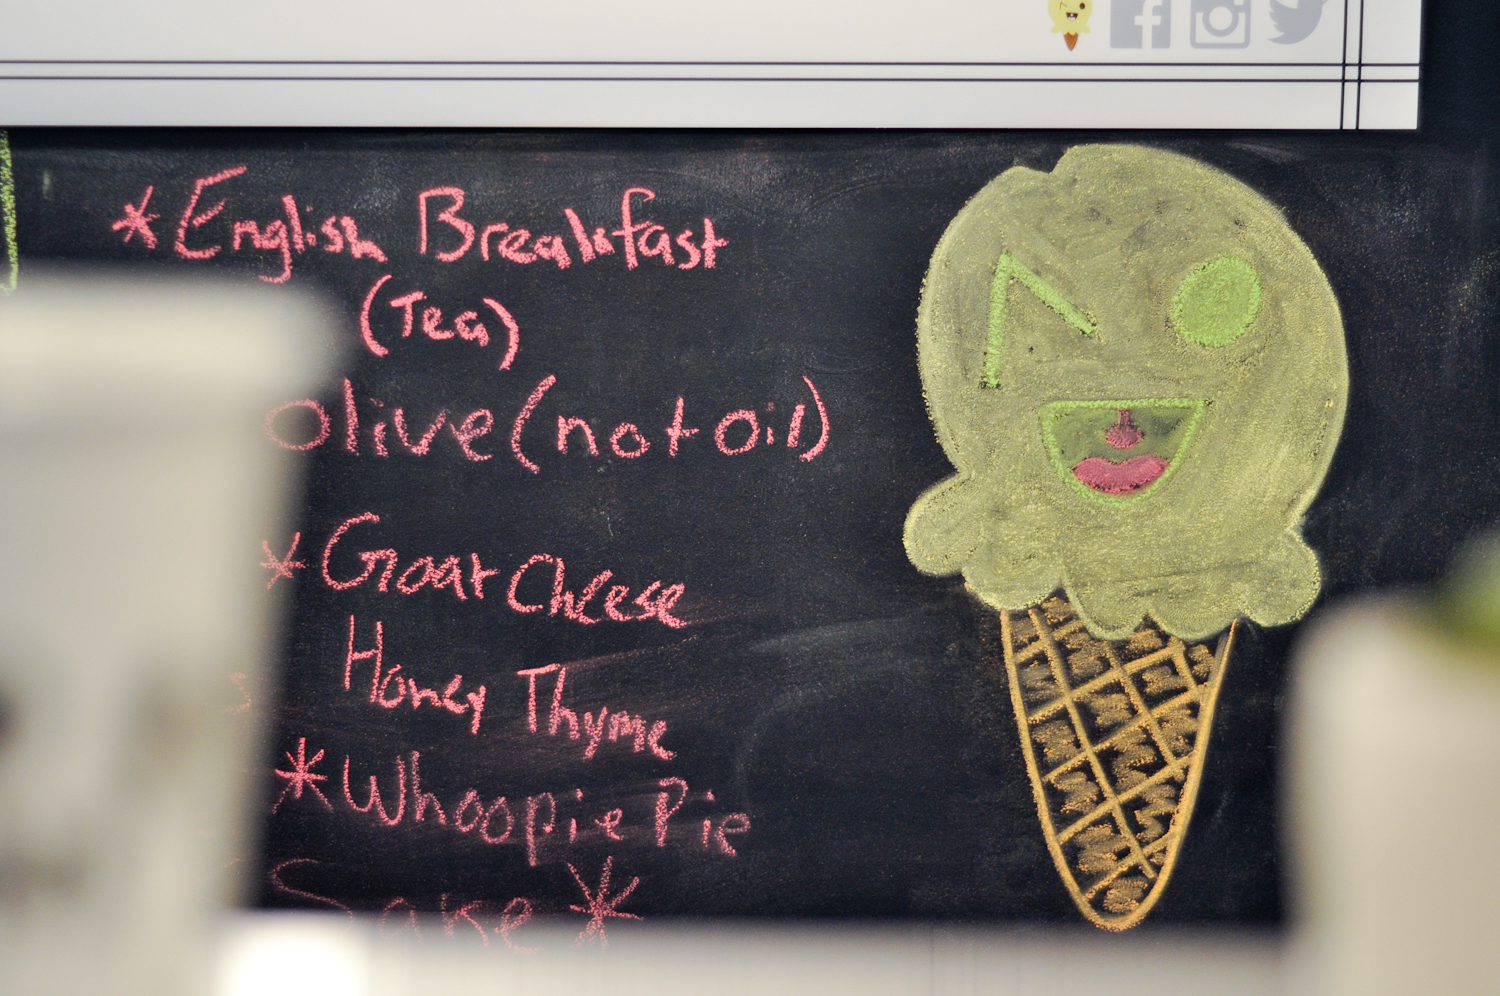 *English Breakfast
(Tea)
Olive (not oil)
*Goat Cheese
Honey Thyme
*Whoopie Pie
Sake*